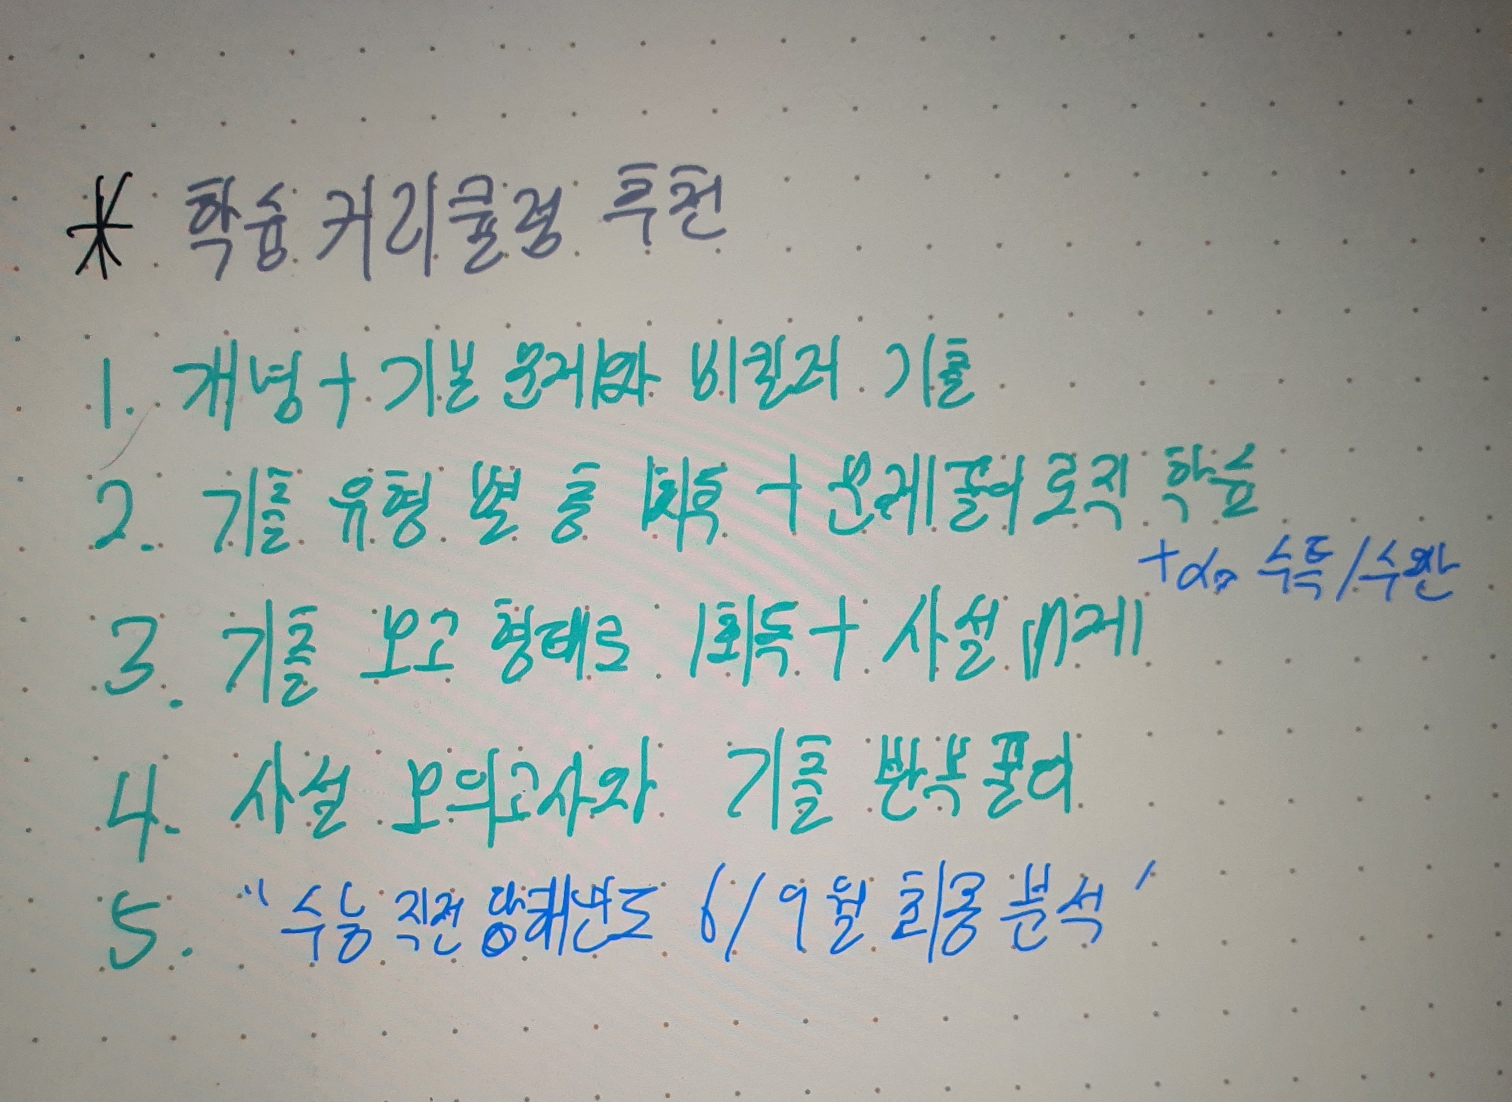 * 학습 커리큘럼 추천
1. 개념 + 기본 문제와 비킬러 기출
2. 기출 유형 별 총 1회독 + 문제풀이 로직 학습
+α, 수특/수완
3. 기출 모고 형태로 1회독 + 사설 n제
4. 사설 모의고사와 기출 반복 풀이
5. "수능 직전 당해년도 6/9월 최종 분석"